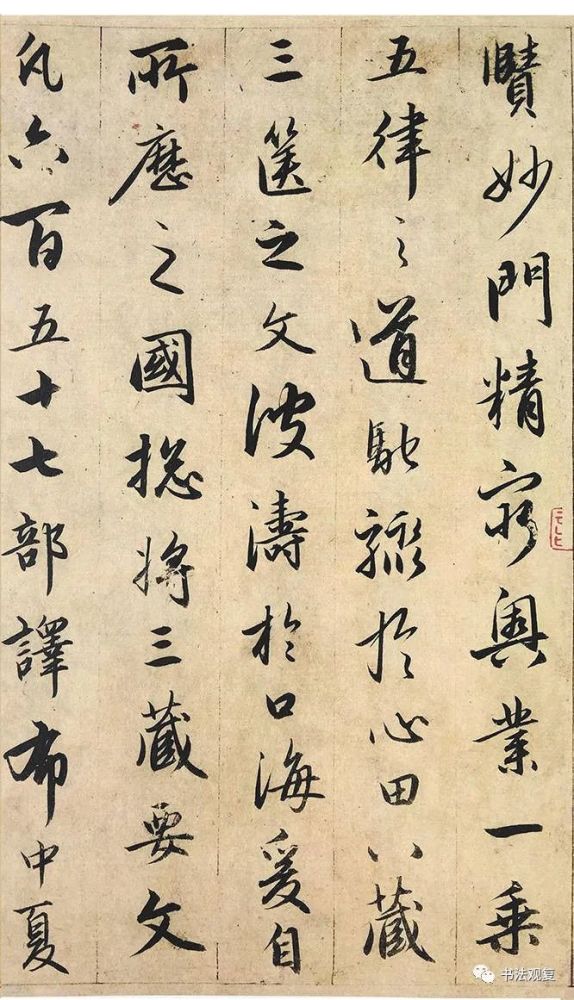 賾妙門精窮奧業一乘
五律之道馳驟於心田八藏
三篋之文波濤於口海爰自
所歷之國揔將三藏要文
凡六百五十七部譯布中夏
书法观复